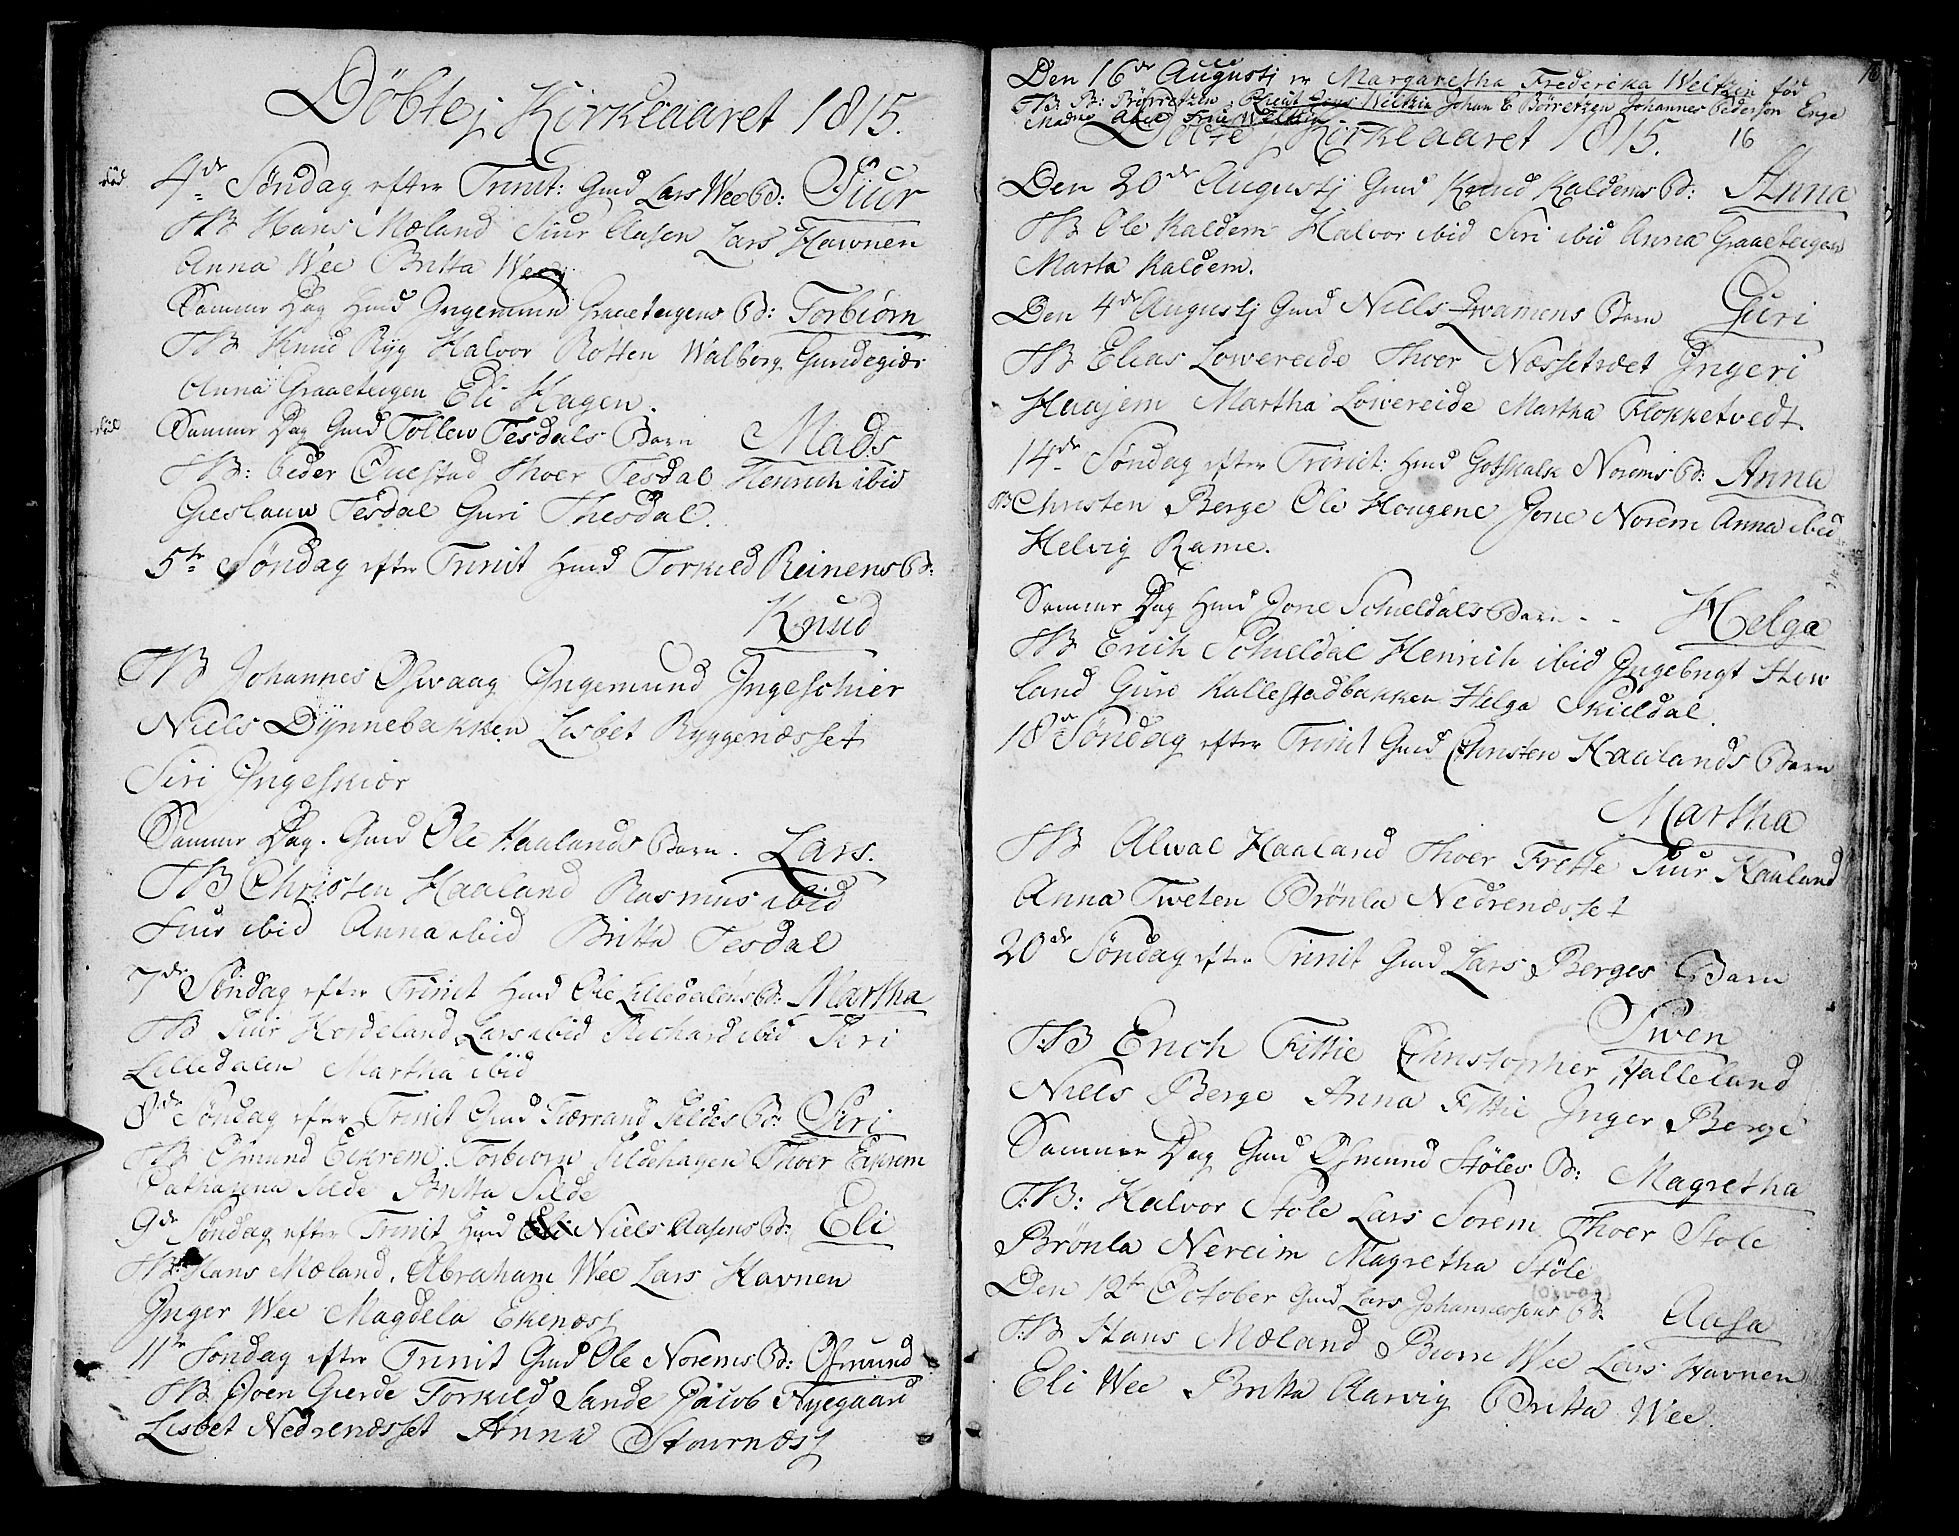 Döbte j Kirkeaaret 1815.
død 4de Søndag efter Trinit: Gmd Lars Wee B: Siur
TB Hans Mæland Siur Aasen Lars Hawnen
Anna Wee Britta Wee
Samme Dag hmd Ingemund Graaeteigens B: Torbiørn
TB Knud Ryg Halvor Rotten Walborg Gundegiær
Anna Graaeteigen Eli Hagen.
død Samme Dag Gmd Tollew Tesdals Barn Mads
TB: Peder Ouestad Thoer Tesdal Henrich ibid
Gieslauw Tesdal Guri Thesdal.
5te Søndag efter Trinit hmd Torkild Reinens B:
Knud
TB Johannes Oswaag Ingemund Ingeschier
Niels Dynnebakken Lisbet Ryggenæsset
Siri Ingeskiær
Samme Dag. Gmd Ole Haalands Barn. Lars.
TB Christen Haaland Rasmus ibid
Siur ibid Anna ibid Britta Tesdal
7de Søndag efter Trinit hmd Ole Lilledalens B: Martha
TB Siur Hordeland Lars ibid Richard ibid Siri
Lilledalen Martha ibid
8de Søndag efter Trinit Gmd Tiærrand Sildes B: Siri
TB Osmund Eikrem Torbiorn Sildehagen Thoer Eikrem
Catharina Silde Britta Silde
9de Søndag efter Trinit hmd Niels Aasens B: Eli
TB: Hans Mæland, Abraham Wee Lars Havnen
Inger Wee Magdela Ekenæss
11te Søndag efter Trinit Gmd Ole Norems B: Osmund
TB Joen Gierde Torkild Sande Jacob Nyegaard
Lisbet Nedrenæsset Anna Stournæss
Den 16de Augustj er Margaretha Frederica Weltzin fød
TB B: Börretzen, Weltzin Johan E Börretzen Johannes Pederson Enge
Madme Frue Weltzin
Döbte j Kirkeaaret 1815. 16
Den 20de Augustj Gmd Knud Kaldems B: Anna
TB Ole Kaldem Halvor ibid Siri ibid Anna Graaeteigen
Marta Kaldem.
Den 4de Augustj Gmd Niels Qvamens Barn Guri
TB Elias Lowereide Thoer Næssetvæt Ingeri
Haajem Martha Lowereide Martha Flokketvedt.
14de Søndag efter Trinit: hmd Gotskalk Norems B: Anna
TB: Christen Berge Ole Hougene Jone Norem Anna ibid
Helvig Rame.
Samme Dag hmd Jone Schieldals Barn - - Helga
TB Erich Schieldal Henrich ibid Ingebrigt Hew
land Guro Kallestadbakken Helga Skieldal.
18de Søndag efter Trinit Gmd Christen Haalands Barn
Martha
TB Alwal Haaland Thoer Frette Siur Haaland
Anna Tweten Brönla Nedrenæsset
20de Søndag efter Trinit Gmd Lars Berges Barn
Swen
T:B Erich Fittie Christopher Halleland
Niels Berge Anna Fittie Inger Berge
Sammer Dag Gmd Osmund Stöles B: Magretha
T:B: Halvor Stöle Lars Sorem Thoer Stöle
Brönla Nereim Magretha Stöle
Den 12te October Gmd Lars Johannessens B. (Osvog) Aasa
T:B Hans Mæland Biorn Wee Lars Havnen
Eli Wee Britta Aarvig Britta Wee.